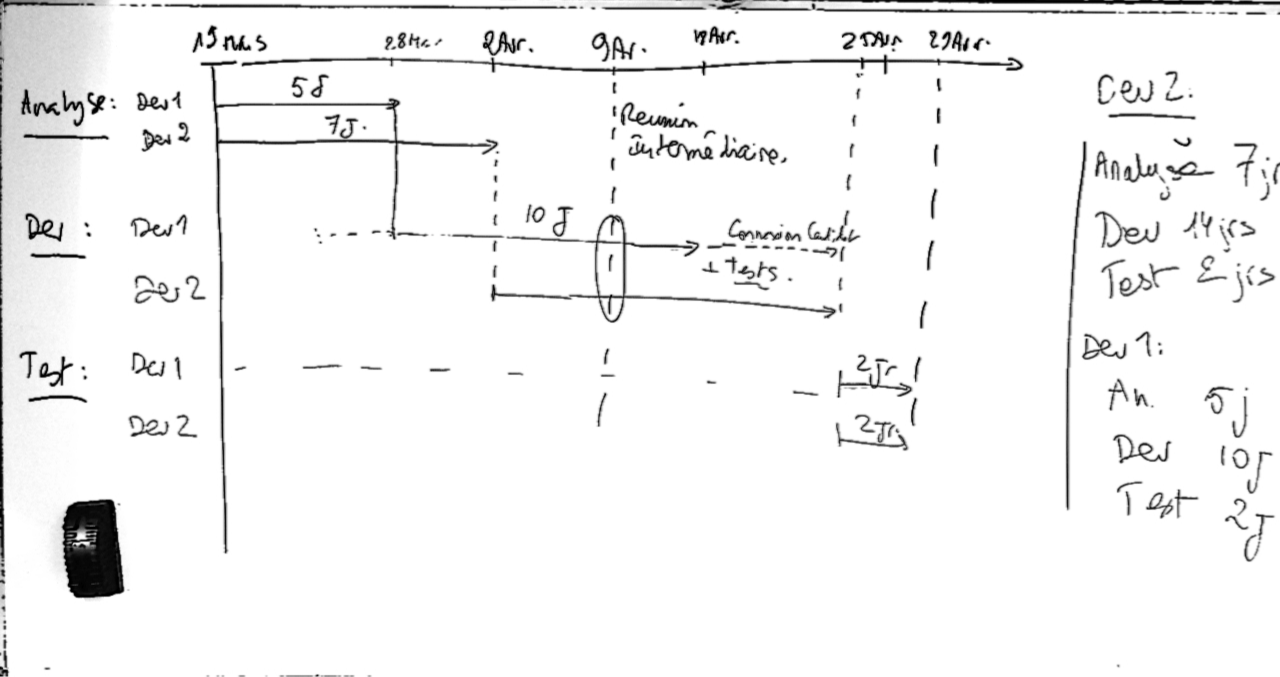 28Mar. 2Avr. 9Av. 25Avr. 29Avr.
Analyse: Dev1 5J
Dev2 7J.
Réunion
intermédiaire.
Dev: Dev1 10J Connexion
+ Tests.
Dev2
Test: Dev1 2Jr
Dev2 2Jr.
Dev2:
Analyse 7jr
Dev 14jrs
Test 2jrs
Dev1:
An. 5j
Dev 10J
Test 2J